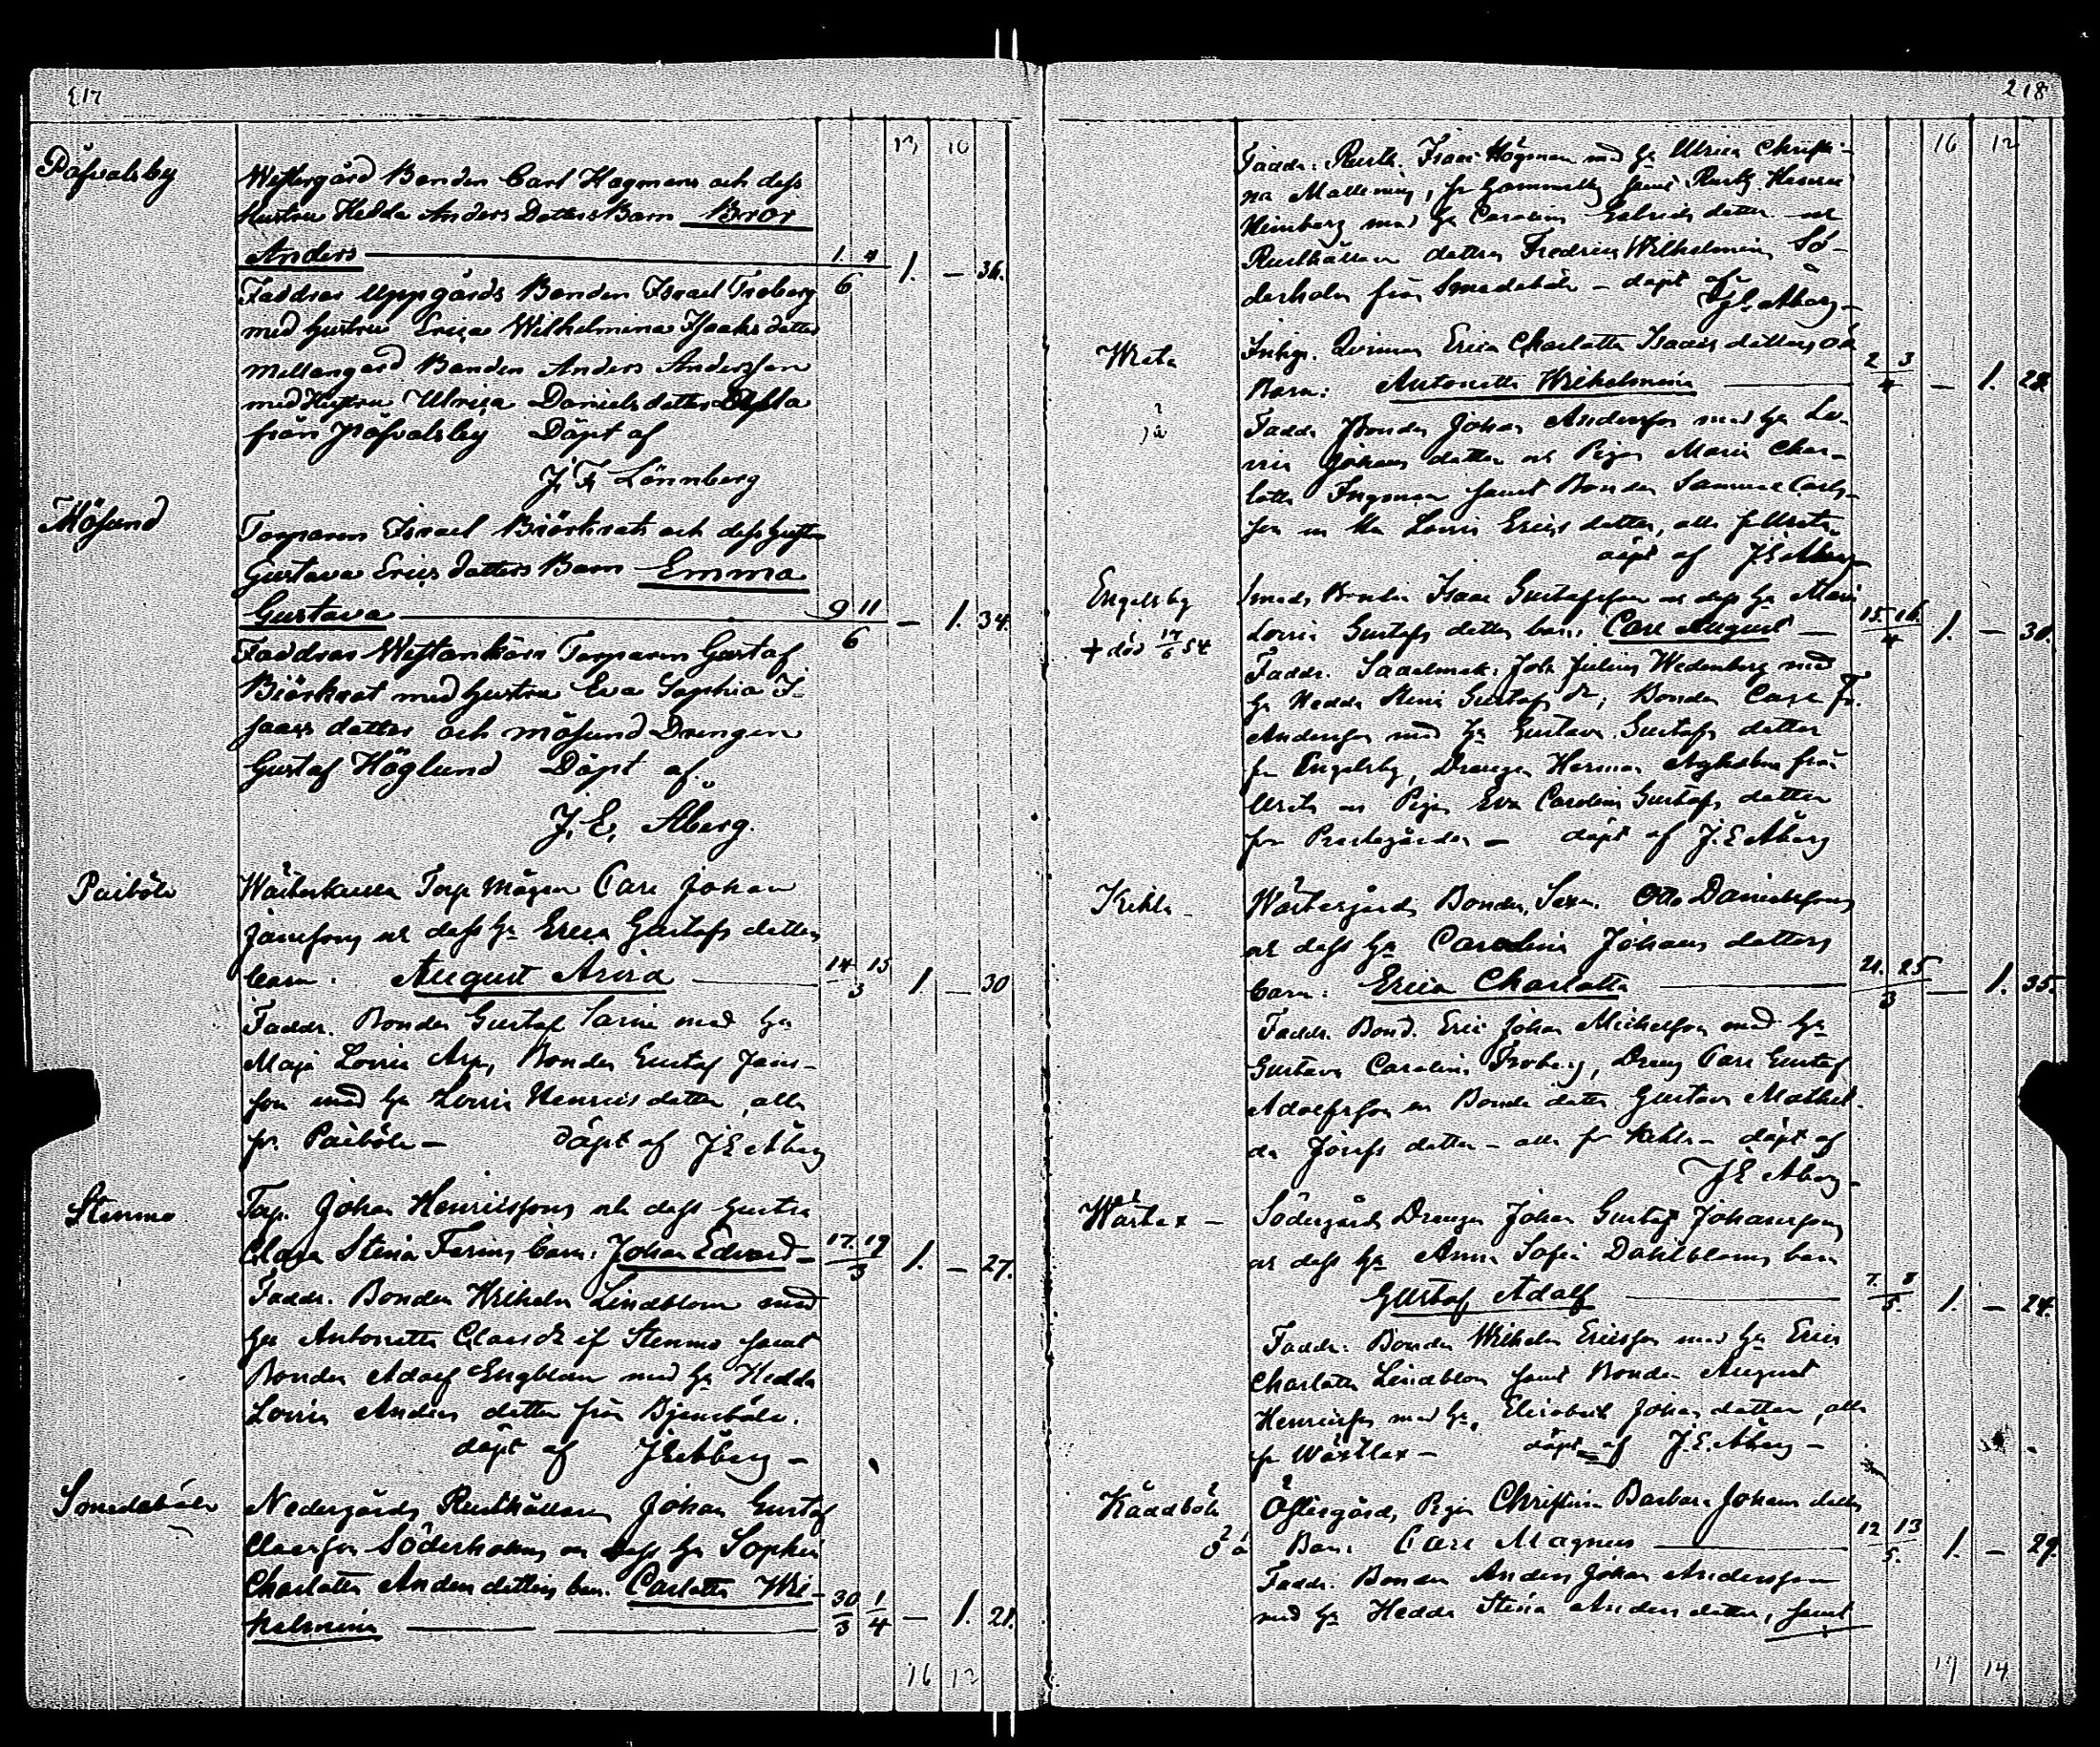 217
13 10
Påfvalsby
Westergård Bonden Carl Hagmans och dess
Hustru Hedda Anders Dotters Barn Bror
Anders 1. 4 6 1. — 36.
Faddrar Uppgårds Bonden Israel Troberg
med hustru Erica Wilhelmina Isaks dotter
mellangård Bonden Anders Andersson
med Hustru Ulrica Daniels dotter
från Påfvalsby Döpt af
J. F. Lönnberg
Mösund
Torparen Israel Biörkqvist och dess hustru
Gustava Erics dotters Barn Emma
Gustava 9 11 6 — 1. 34.
Faddrar Torparen Gustaf
med hustru Eva Sophia I-
saacs dotter och mösund Drengen
Gustaf Höglund Döpt af
J. E. Åberg.
Paiböle
Torp Mågen Carl Johan
Jansons och dess hu Erica Gustafs dotters
barn: August Arvid 14 15 3 1. — 30
Faddr. Bonden Gustaf Sarin med hu
Maja Lovisa Arp, Bonden Gustaf Jans-
son med hu Lovisa Henricsdotter, alla
fr. Paiböle — döpt af J E Åberg
Stenmo
Torp. Johan Henricssons och dess hustru
Clara Stina Farins barn: Johan Edvard — 17. 19 3 1. — 27.
Faddr. Bonden Wilhelm Lindblom med
hu Antonetta Claesdr if Stenmo samt
Bonden Adolf Engblom med hu Hedda
Lovisa Anders dotter från Bjensböle.
döpt af J E Åberg —
Smedsböle
Nedergårds Rusthållaren Johan Gustaf
Claesson Söderholms och dess hu Sophia
Charlotta Anders dotters barn. Carlotta Wil-
helmina 30/3 1/4 — 1. 21.
16 12
218
16 12
Faddr. Rusth. Isaac Högman med hu Ulrica Christi-
na Mallenius, fr Gammelby samt Rusth. Henric
Heinberg med hu Carolina dotter och
Rusthållare dottren Fredrica Wilhelmina Sö-
derholm från Smedsböle — döpt af
J E Åberg —
Wreta
Inhys. Qvinnan Erica Charlotta Isaacs dotters oä
Barn: Antonetta Wilhelmina 2 3 4 — 1. 28.
Faddr Bonden Johan Andersson med hu Lo-
visa Johans dotter och Pigan Maria Char-
lotta Ingman samt Bonden Samuel Carls-
son och Lovisa Erics dotter, alla fr Wreta
döpt af J E Åberg
Engelsby
† död 17/6 54
Smeds Bonden Isaac Gustafsson och dess hu Maria
Lovisa Gustafs dotters barn: Carl August — 15. 16. 4 1. — 30.
Faddr. Sadelmak. Joh. Julius Wedenberg med
hu Hedda Stina Gustafs dr; Bonden Carl Fr.
Andersson med hu Gustava Gustafs dotter
fr Engelsby, Drengen Herman från
Wreta och Pigan Eva Carolina Gustafs dotter
från Prestegården — döpt af J. E Åberg
Kihla —
Wästergårds Bonden, Sexm. Otto Danielssons
och dess hu Carolina Johans dotters
barn: Erica Charlotta 21. 25 3 — 1. 35.
Faddr. Bond. Eric Johan Michelsson med hu
Gustava Carolina Troberg, Dreng Carl Gustaf
Adolfsson och Bonde dotter Gustava Mathil-
da Josefs dotter — alla fr Kihla — döpt af
J E Åberg —
Wästlax —
Södergårds Drengen Johan Gustaf Johanssons
och dess hu Anna Sofia Dahlbloms barn
Gustaf Adolf 7. 8 5. 1. — 24.
Faddr: Bonden Wilhelm Ericsson med hu Erica
Charlotta Lindblom samt Bonden August
Henricsson med hu, Elisabeth Johans dotter, alla
fr Wästlax — döpt af J. E. Åberg —
Käddböle
Östergårds, Pigan Christina Barbara Johans dotters
oä Barn: Carl Magnus 12 13 5. 1. — 29.
Faddr: Bonden Anders Johan Andersson
med hu Hedda Stina Anders dotter, samt
17 14